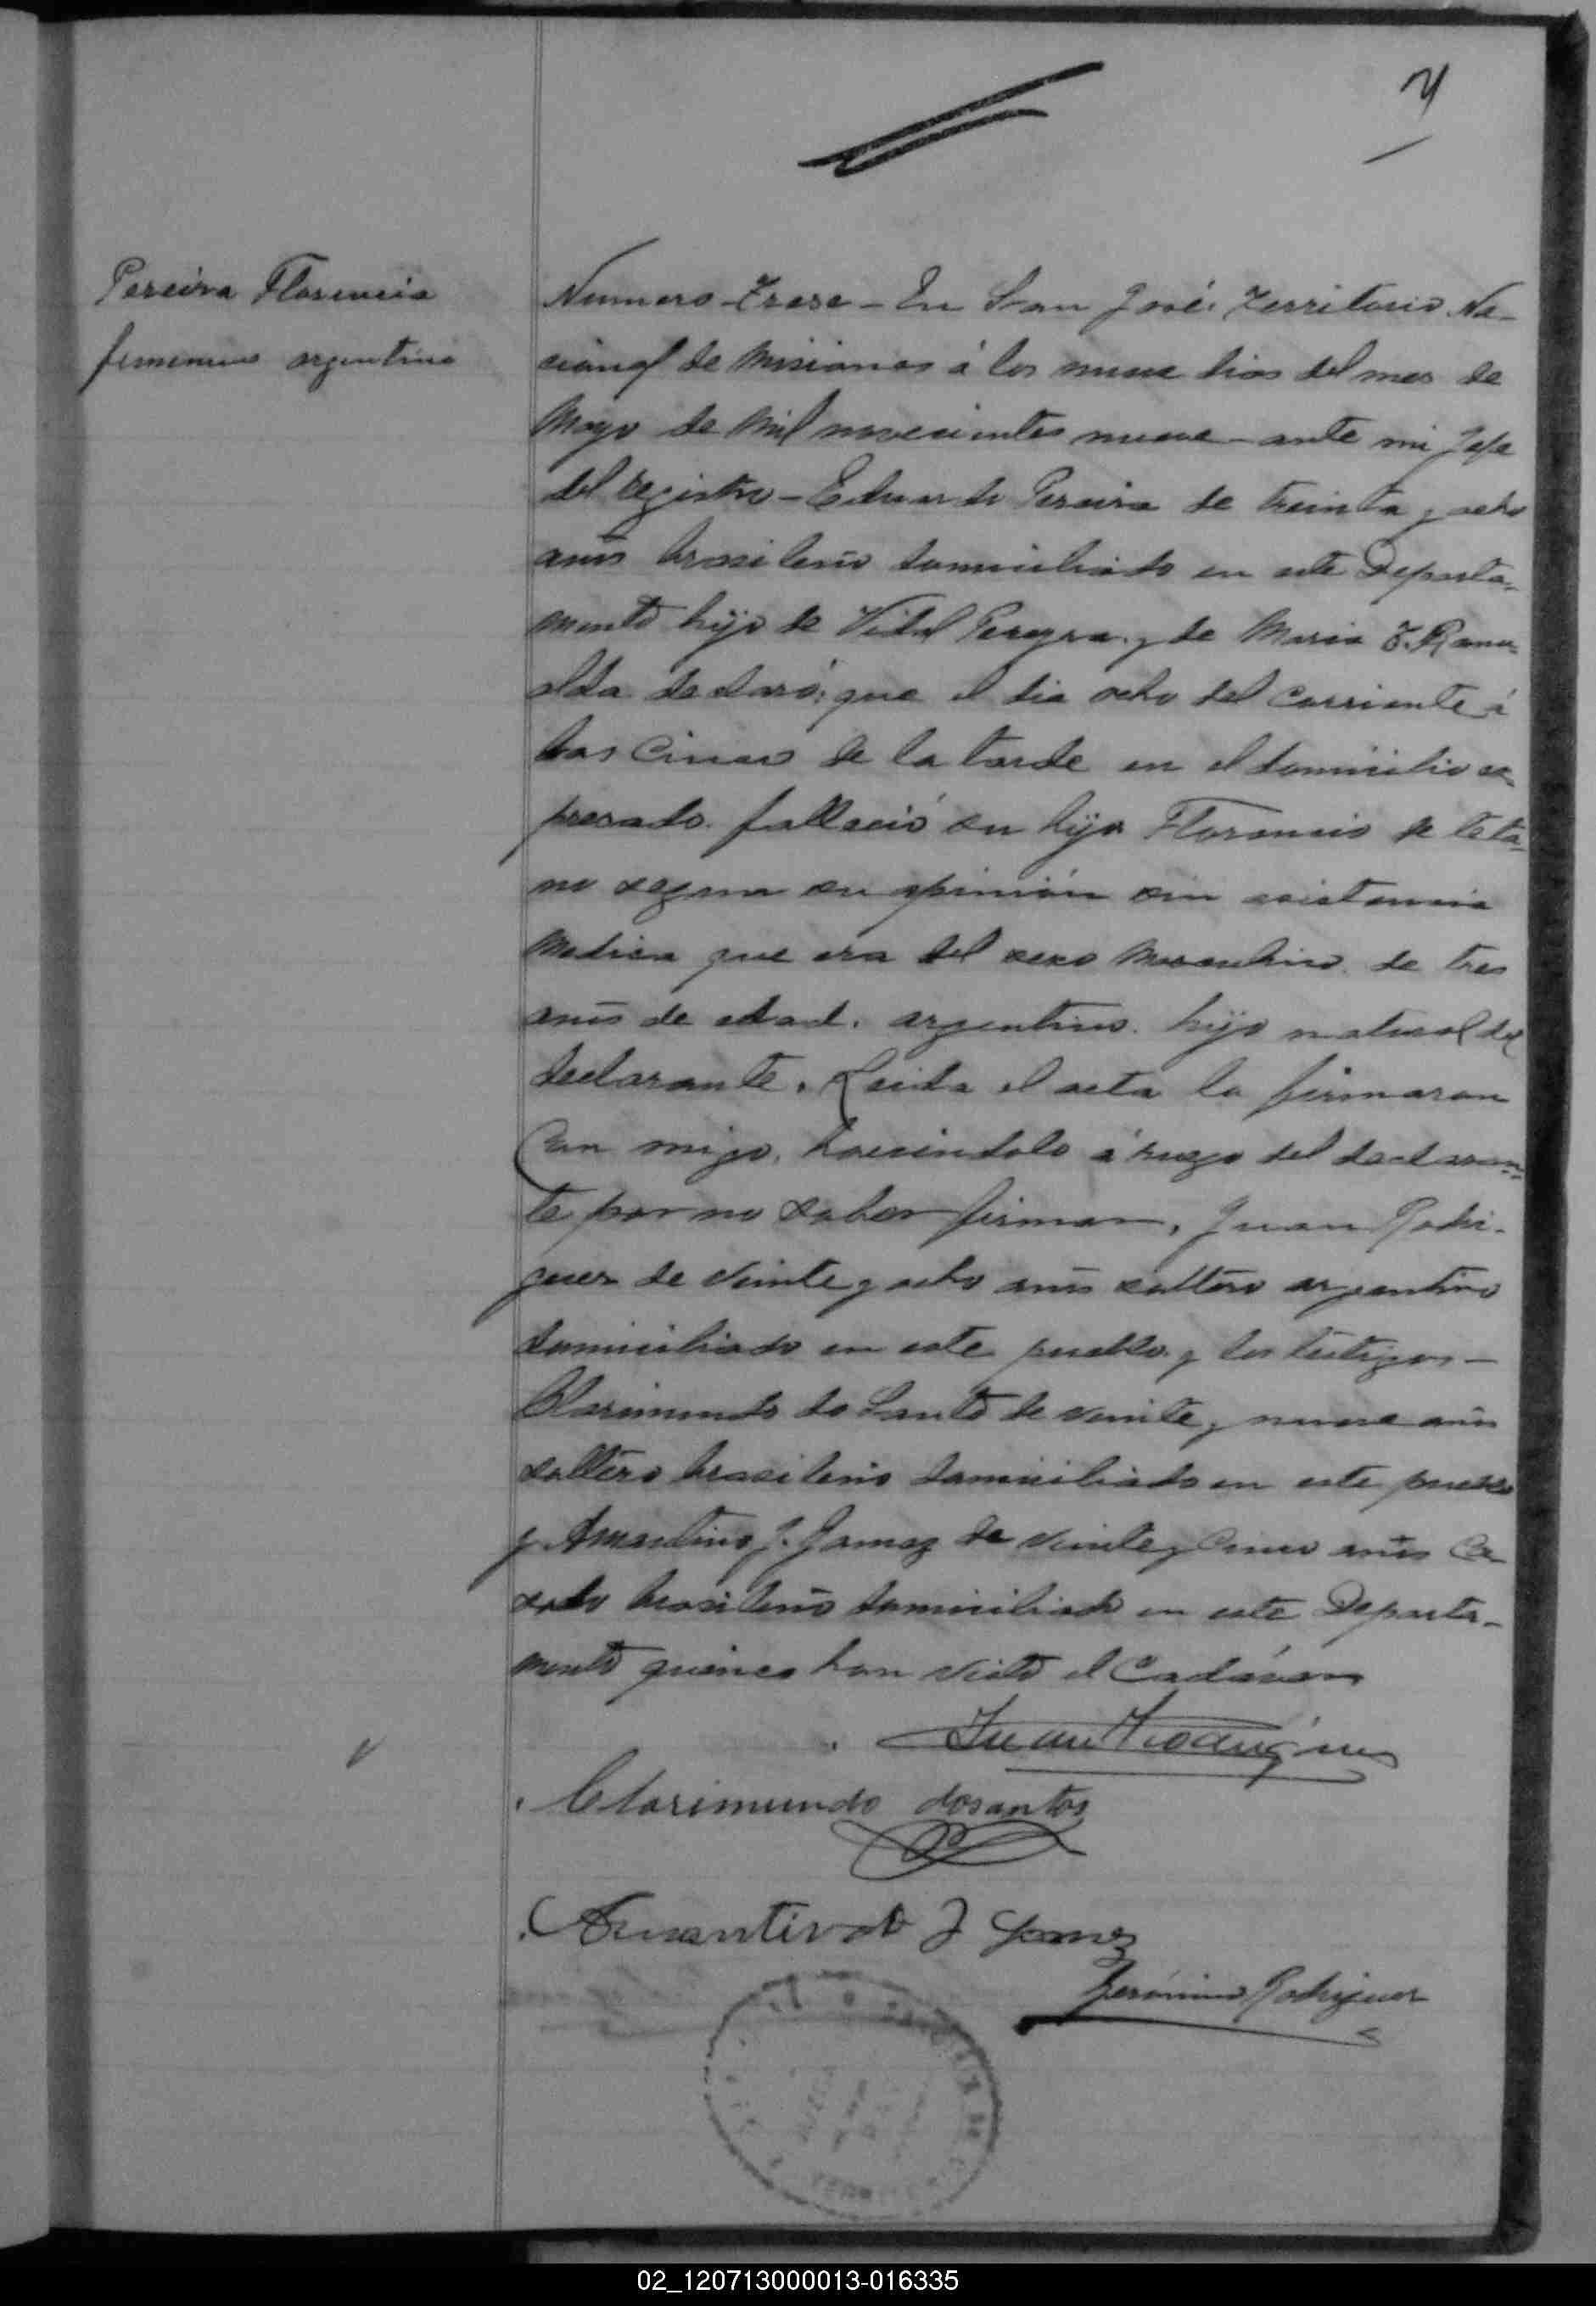 7
Pereira Florencia
femenino argentino
Numero Trese - En San José. Territorio Na-
cional de Misiones á los nueve dias del mes de
Mayo de Mil novecientos nueve - ante mi Jefe
del registro - Eduardo Pereira de treinta y ocho
años brasileño domiciliado en este Departa-
mento hijo de Vidal Pereyra y de Maria F. Romu-
alda declaró: que el dia ocho del corriente á
las Cinco de la tarde en el domicilio ex-
presado. falleció su hijo Florencio de teta-
no segun su opinión sin asistencia
Medica que era del sexo Masculino de tres
años de edad. argentino. hijo natural del
declarante. Leida el acta la firmaron
Con migo, haciendolo á ruego del declaran-
te por no saber firmar, Juan Rodri-
guez de veinte y ocho años soltero argentino
domiciliado en este pueblo y los testigos -
Clarimundo do Santo de veinte y nueve años
soltero brasileño domiciliado en este pueblo
y Amantino J. Gomez de veinte y Cinco años Ca-
sado brasileño domiciliado en este Departa-
mento quienes han visto el Cadáver
Juan Rodriguez
Clarimundo dosantos
Amantino J Gomez
Jerónimo Rodriguez
02_120713000013-016335